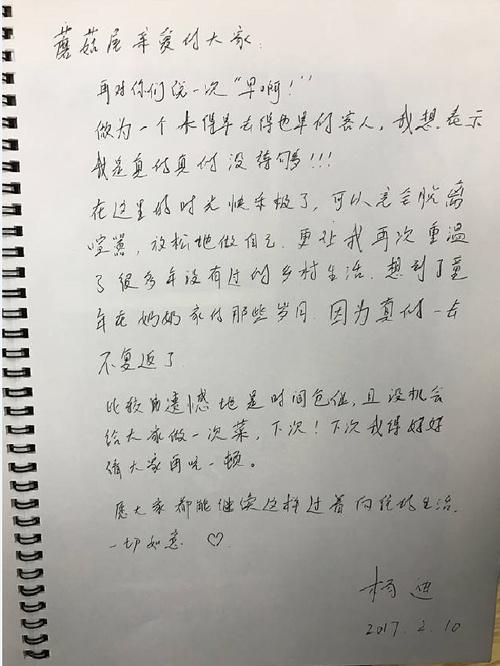 蘑菇屋亲爱的大家:
再对你们说一次“早啊!”
做为一个来得早去得也早的客人,我想表示
我是真的真的没待够!!!
在这里的时光快乐极了,可以完全脱离
喧嚣,放松地做自己.更让我再次重温
了很多年没有过的乡村生活.想到了童
年在奶奶家的那些岁月.因为真的一去
不复返了.
比较遗憾地是时间仓促,且没机会
给大家做一次菜,下次!下次我得好好
请大家再吃一顿。
愿大家都能继续这样过着向往的生活.
一切如意. ♡
杨迪
2017.2.10